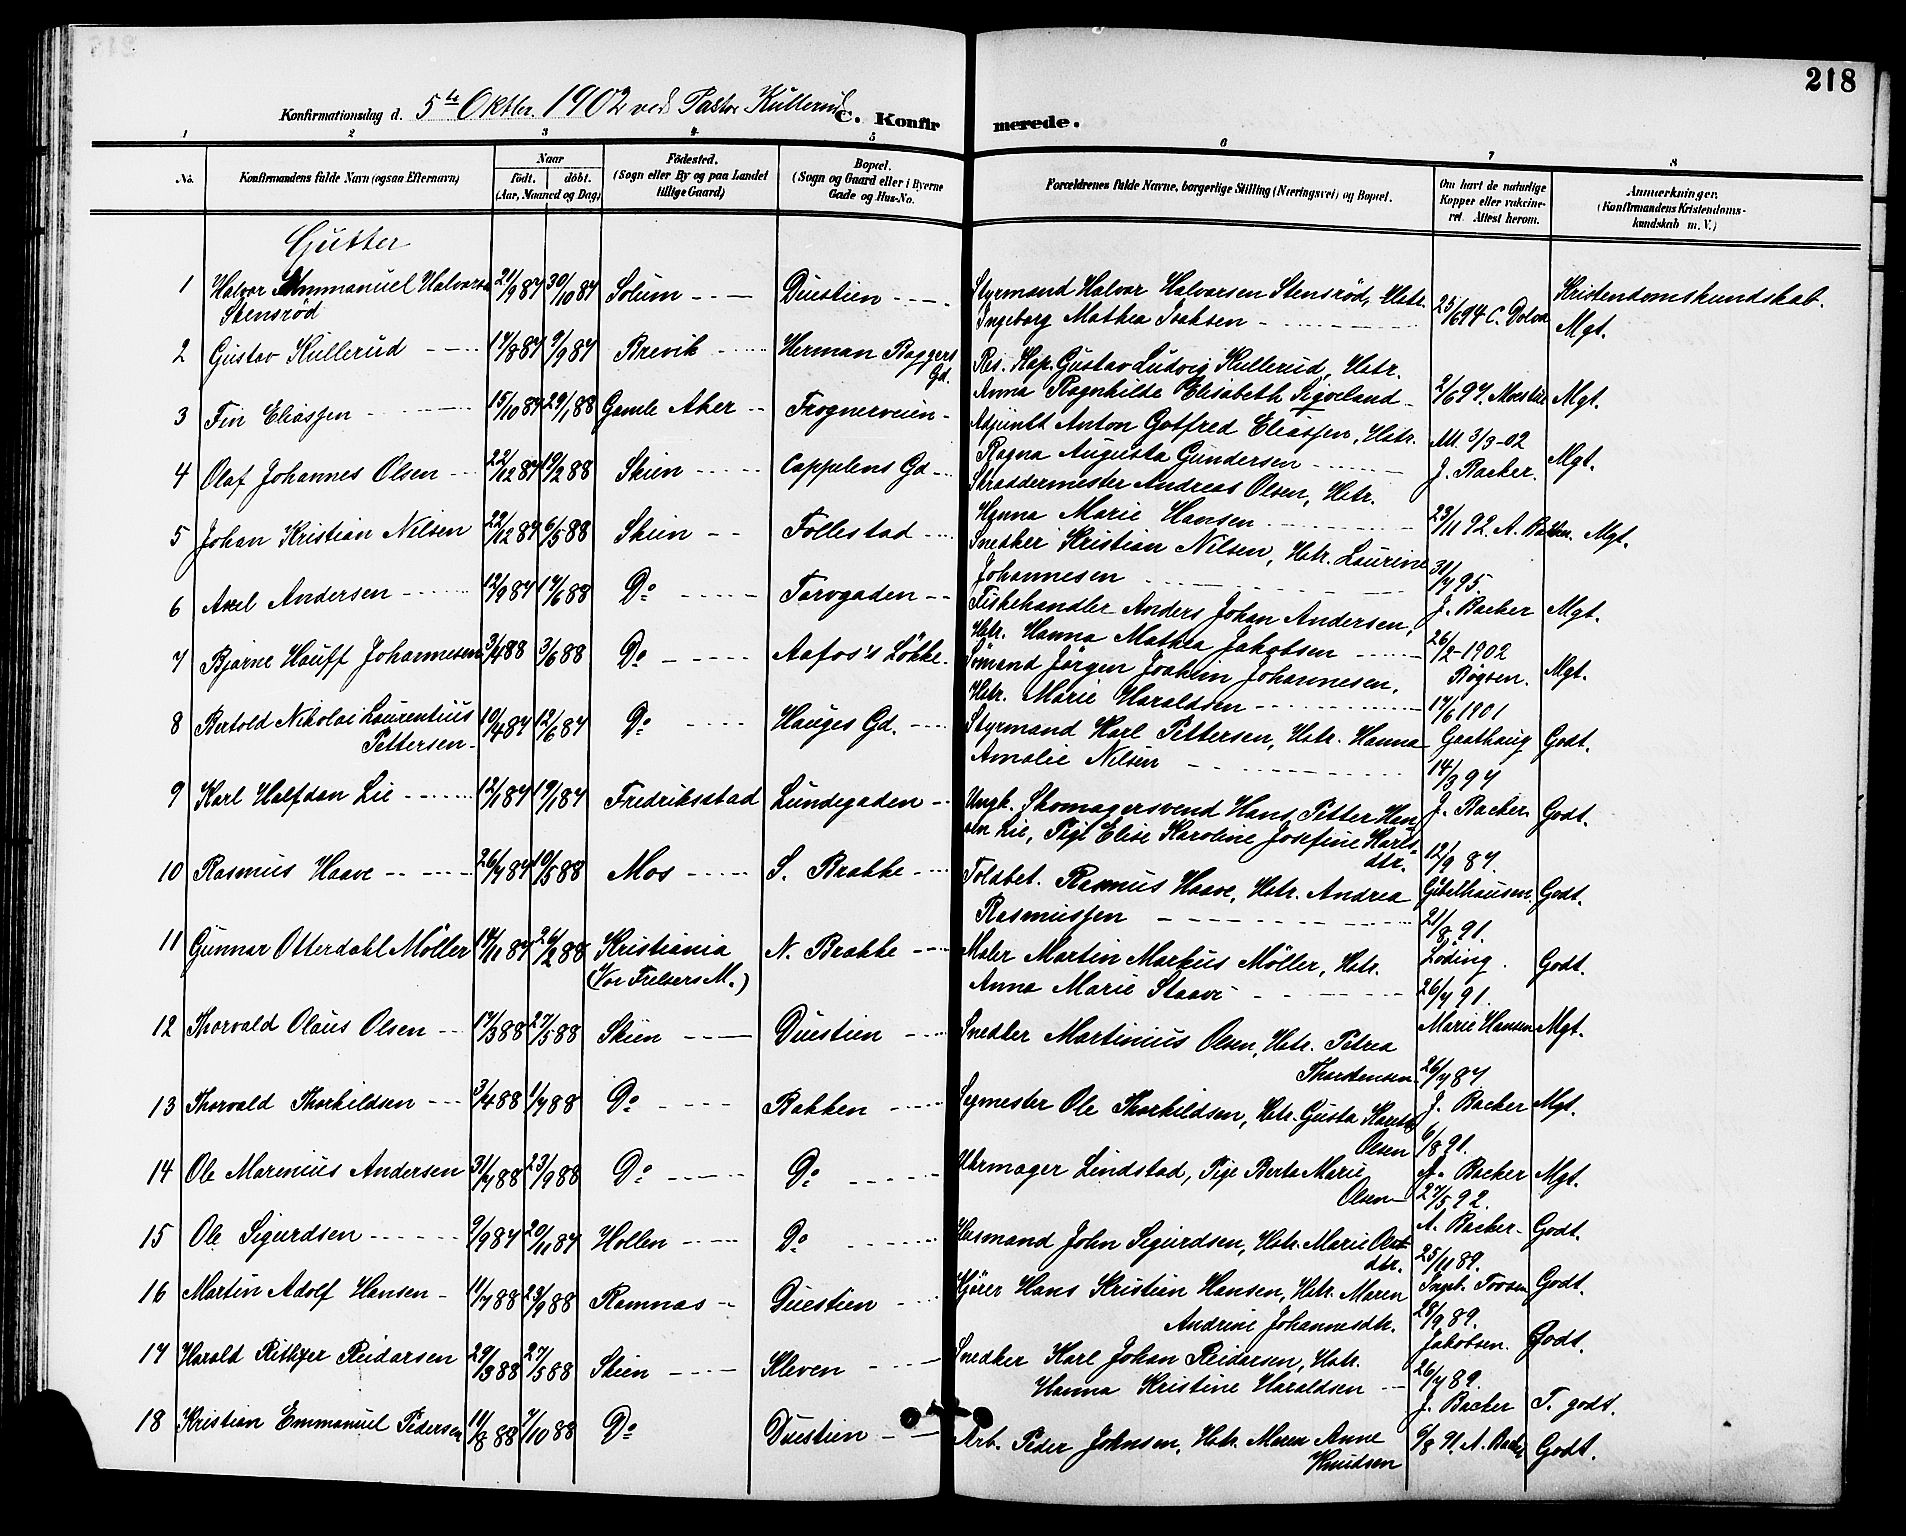 218
Konfirmationsdag d. 5te Oktbr. 1902 ved Pastor Kullerud
C. Konfirmerede.
1 2 3 4 5 6 7 8
No. Konfirmandens fulde Navn (ogsaa Efternavn) Naar født. døbt. (Aar, Maaned og Dag) Fødested. (Sogn eller By og paa Landet tillige Gaard) Bopæl. (Sogn og Gaard eller i Byerne Gade og Hus-No. Forældrenes fulde Navne, borgerlige Stilling (Næringsvei) og Bopæl. Om havt de naturlige Kopper eller vakcineret. Attest herom. Anmerkninger. (Konfirmandens Kristendomskundskab m. V.)
Gutter
Kristendomskundskab.
1 Halvor Emmanuel Halvorsen Stensrød 21/9 87 30/10 87 Solum Duestien Styrmand Halvor Halvorsen Stensrød, Hstr. Ingeborg Mathea Isaksen 25/6 94 C. Dolva Mgt.
2 Gustav Kullerud 17/8 87 9/9 87 Brevik Herman Baggers Gd. Res. Kap. Gustav Ludvig Kullerud, Hstr. Anna Ragnhilde Elisabeth Sigveland 2/6 97. Moestue Mgt.
3 Finn Eliassen 15/10 87 29/1 88 Gamle Aker Frognerveien Adjunkt Anton Gotfred Eliassen, Hstr. Ragna Augusta Gundersen Att. 3/3-02 J. Backer. Mgt.
4 Olaf Johannes Olsen 22/12 87 19/2 88 Skien Cappelens Gd Skræddermester Andreas Olsen, Hstr. Hanna Marie Hansen 23/11 92. A. Backer. Mgt.
5 Johan Kristian Nilsen 22/12 87 6/5 88 Skien Follestad Snedker Kristian Nilsen, Hstr. Laurine Johannesen 31/7 95. J. Backer Mgt.
6 Axel Andersen 12/9 87 17/6 88 Do Torvgaden Fiskehandler Anders Johan Andersen, Hstr. Hanna Mathea Jakobsen 26/2-1902 Bøgsen. Mgt.
7 Bjarne Hauff Johannesen 3/4 88 3/6 88 Do Aafos's Løkke Sømand Jørgen Joakim Johannesen, Hstr. Marie Haraldsen 17/6 1901 Gaathaug Mgt.
8 Bertold Nikolai Laurentius Pettersen 10/4 87 12/6 87 Do Hauges Gd. Styrmand Karl Pettersen, Hstr. Hanna Amalie Nilsen 14/3 97 J. Backer Godt.
9 Karl Halfdan Lie 12/1 87 19/1 87 Fredriksstad Lundegaden Ungk. Skomagersvend Hans Petter Hansen Lie, Pige Elise Karoline Josefine Karlsdtr. 12/9 87. Godt.
10 Rasmus Haave 26/7 87 10/5 88 Mos S. Brække Toldbet. Rasmus Haave, Hstr. Andrea Rasmussen Gibelhausen. 21/8. 91. Godt.
11 Gunnar Otterdahl Møller 14/11 87 26/2 88 Kristiania (Vor Frelsers M.) N. Brække Maler Martin Markus Møller, Hstr. Anna Marie Staave Løding. 26/7 91. Godt.
12 Thorvald Olaus Olsen 17/3 88 27/5 88 Skien Duestien Snedker Martinius Olsen, Hstr. Petrea Thorstensen Marie Hansen 26/7 87. Mgt.
13 Thorvald Thorkildsen 3/4 88 1/7 88 Do Bakken Sagmester Ole Thorkildsen, Hstr. Gusta Olsen J. Backer 6/8 91. Mgt.
14 Ole Marenius Andersen 31/7 88 23/9 88 Do Do Uhrmager Lindstad, Pige Berta Marie Olsen A. Backer 27/5 92. Mgt.
15 Ole Sigurdsen 9/9 87 20/11 87 Hollen Do Husmand John Sigurdsen, Hstr. Marie dtr. A. Backer 25/11 89. Godt.
16 Martin Adolf Hansen 11/7 88 23/9 88 Ramnæs Duestien Kjører Hans Kristian Hansen, Hstr. Maren Andrine Johannesdtr. Ingb. 28/9 89. Godt.
17 Harald Rithjer Reidarsen 29/3 88 27/5 88 Skien Kleven Snedker Karl Johan Reidarsen, Hstr. Hanna Kristine Haraldsen Jakobsen. 26/7 89. J. Backer Godt. T. godt.
18 Kristian Emmanuel Pedersen 11/8 88 7/10 88 Do Duestien Arb. Peder Johnsen, Hstr. Maren Anne Knudsen 6/8 91. A. Backer Godt.